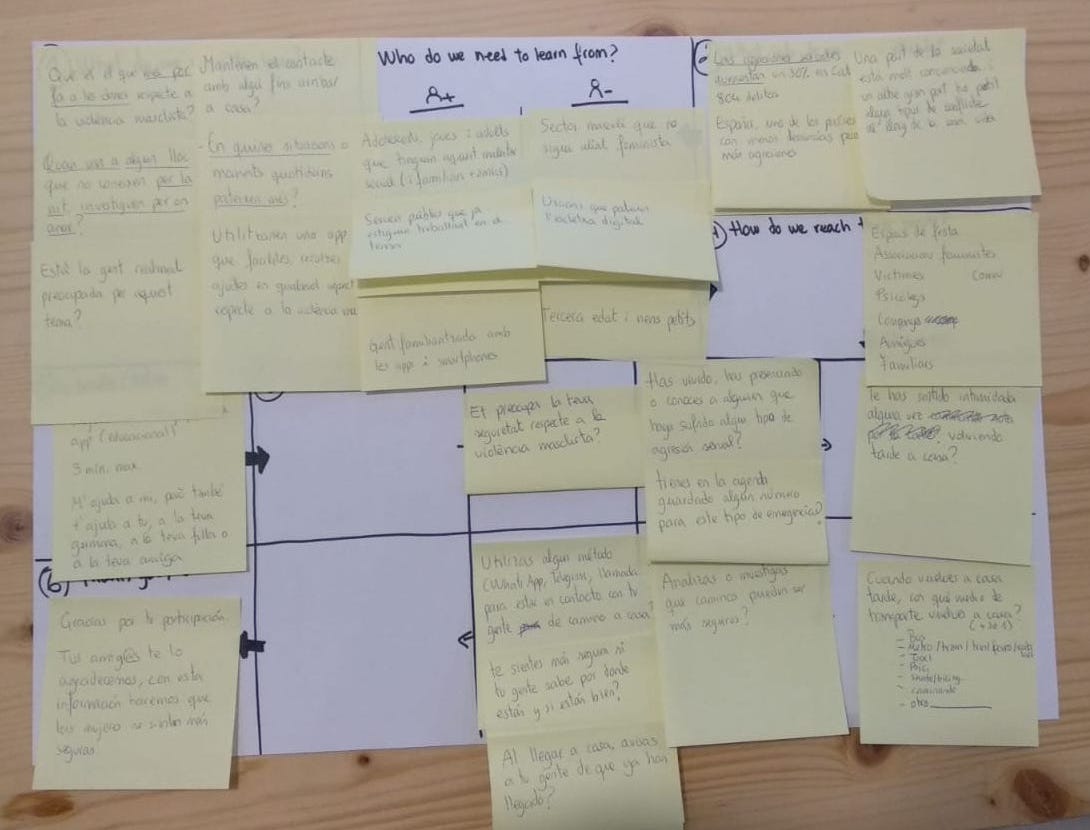 Què és el que més por
fa a les dones respecte a
la violència masclista?
Quan vas a algun lloc
que no coneixen per la
nit, investiguen per on
anar?
Està la gent realment
preocupada per aquest
tema?
Mantenen el contacte
amb algú fins arribar
a casa?
En quines situacions o
moments quotidians
pateixen més?
Utilitzarien una app
que faciliti, recolzi
ajudes en qualsevol aspecte
respecte a la violència
Who do we need to learn from?
Adolescents, joves i adults
que tinguin
sexual (i familiars i amics)
Serveis públics que ja
estiguin treballant en el
tema
Gent familiaritzada amb
les apps i smartphones
Sector masclí que no
sigui aliat feminista
Usuaris que pateixin
l'escletxa digital
Tercera edat i nens petits
Las agresiones sexuales
aumentan un 30% en Cat
804 delitos
España, uno de los países
con menos denuncias pero
más agresiones
Una part de la societat
està molt conscienciada i
un altre gran part ha patit
algun tipus de conflicte
al llarg de la seva vida
How do we reach
Espais de festa
Associacions feministes
Víctimes
Psicòlegs
Companys
Amigues
Familiars
app (educacional)
3 min. max
M'ajuda a mi, però també
t'ajuda a tu, a la teva
germana, a la teva filla o
a la teva amiga
Et preocupa la teva
seguretat respecte a la
violència masclista?
Has vivido, has presenciado
o conoces a alguien que
haya sufrido algún tipo de
agresión sexual?
tienes en la agenda
guardado algún número
para este tipo de emergencia?
Te has sentido intimidada
alguna vez
volviendo
tarde a casa?
(6)
Gracias por tu participación.
Tus amig@s te lo
agradecemos, con esta
información haremos que
las mujeres se sientan más
seguras
Utilizas algún método
(WhatsApp, Telegram, llamada)
para estar en contacto con tu
gente de camino a casa?
te sientes más segura si
tu gente sabe por donde
estás y si estás bien?
Al llegar a casa, avisas
a tu gente de que ya han
llegado?
Analizas o investigas
que caminos pueden ser
más seguros?
Cuando vuelves a casa
tarde, con qué medio de
transporte vuelves a casa?
(+ de 1)
- Bus
- Metro / tram / tren
- Taxi
- Bici
- caminando
- otro